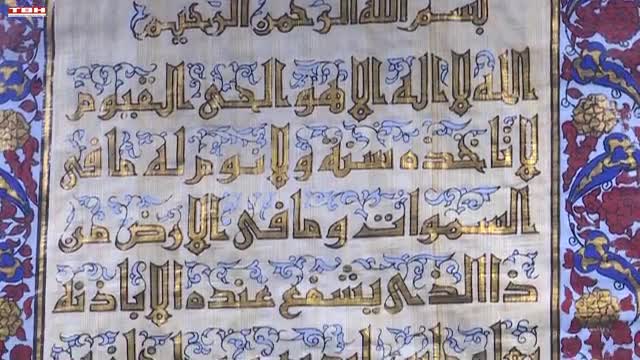 ТВН
بسم الله الرحمن الرحيم
الله لا اله الا هو الحى القيوم
لا تاخذه سنة ولا نوم له ما فى
السموات وما فى الارض من
ذا الذى يشفع عنده الا باذنه